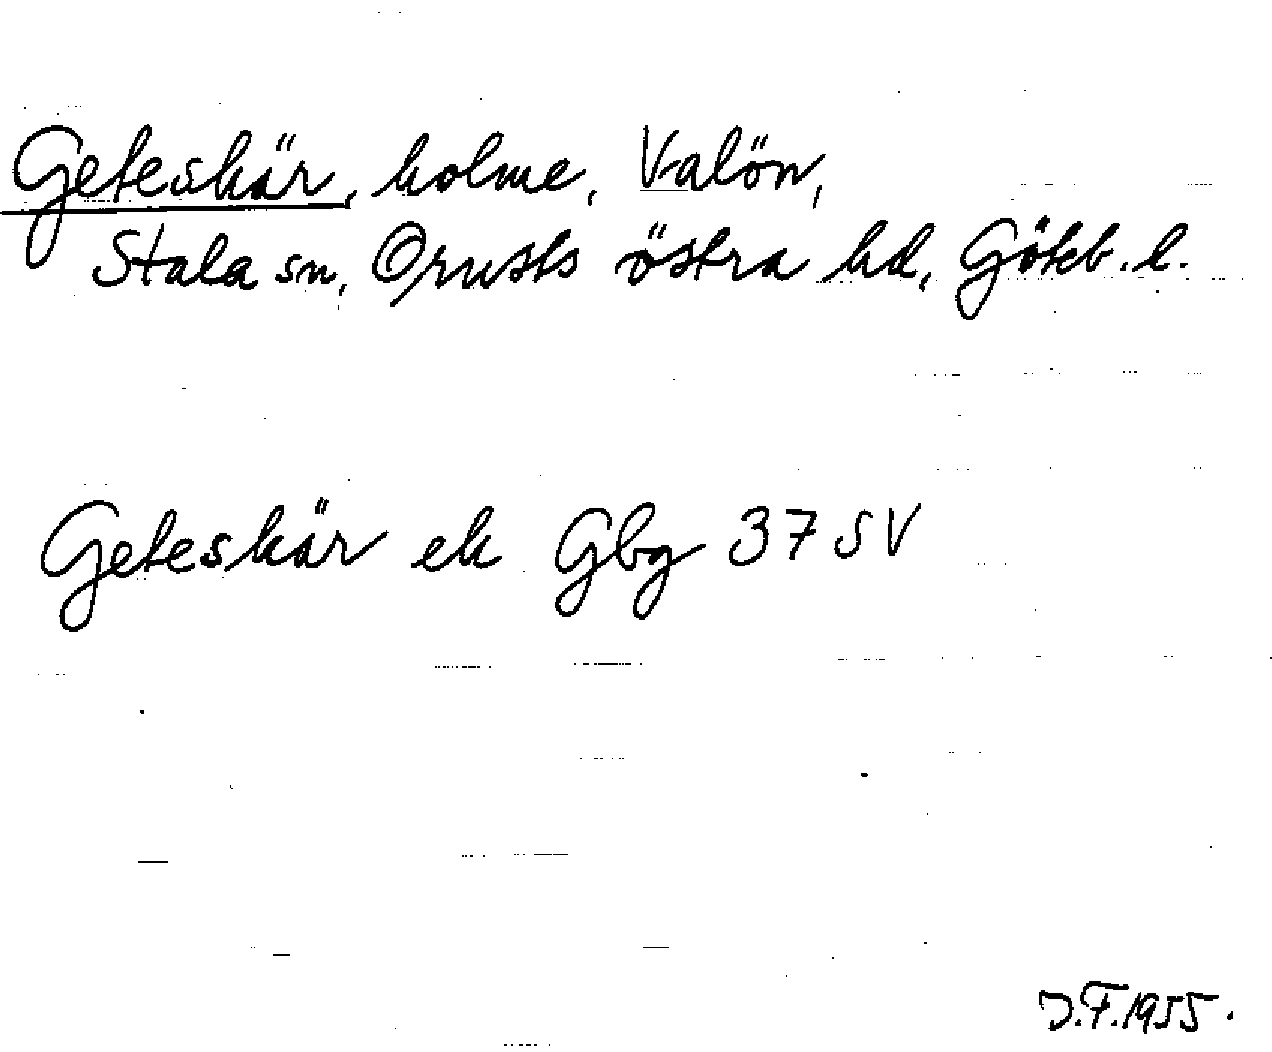 Geteskär, holme, Valön,
Stala sn, Orusts östra hd, Göteb. l.
Geteskär ek Gbg 37 SV
J.F. 1955.